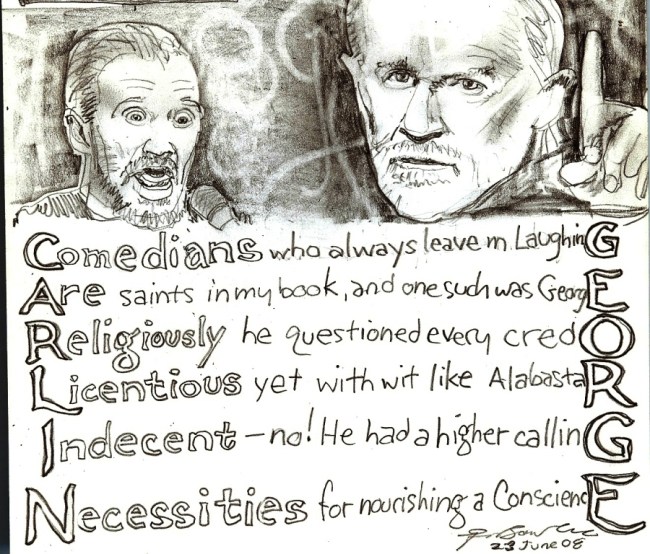 Comedians who always leave m. LaughinG
Are saints in my book, and one such was GeorgE
Religiously he questioned every credO
Licentious yet with wit like AlabastaR
Indecent – no! He had a higher callinG
Necessities for nourishing a ConsciencE
23 June 08